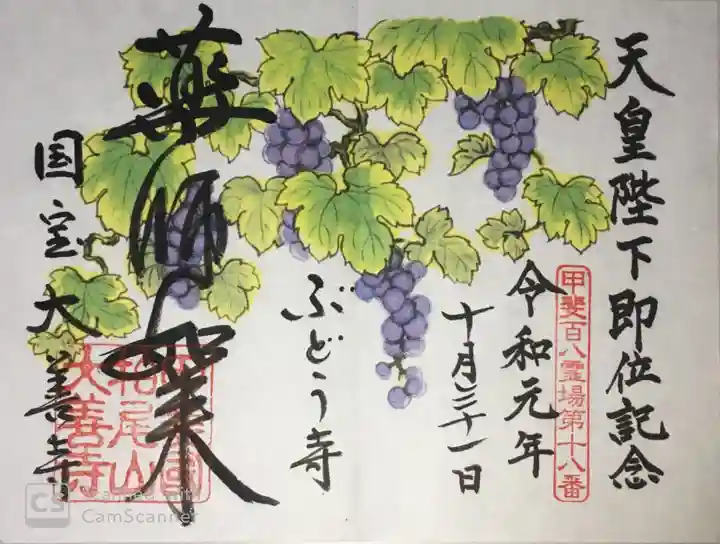 天皇陛下即位記念
甲斐百八霊場第十八番
令和元年
十月三十一日
ぶどう寺
薬師如来
国宝大善寺
柏尾山
大善寺
CS Scanned with
CamScanner